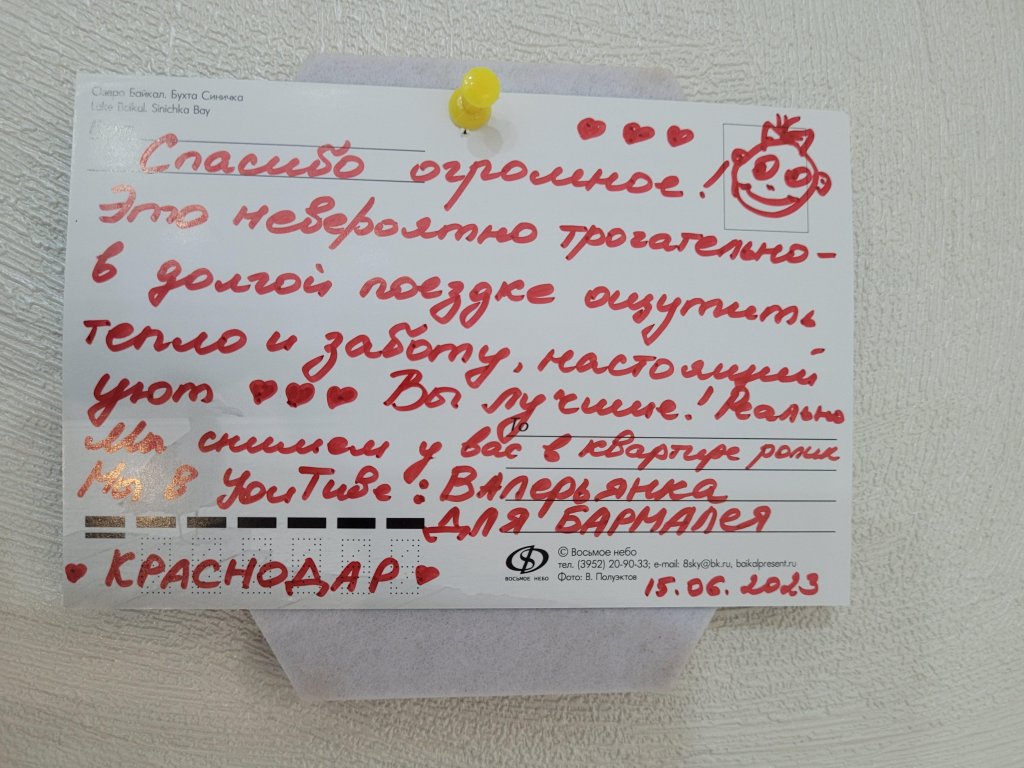 Озеро Байкал. Бухта Синичка
Lake Baikal. Sinichka Bay
Спасибо огромное!
Это невероятно трогательно-
в долгой поездке ощутить
тепло и заботу, настоящий
уют Вы лучшие! Реально
То
Мы снимем у вас в квартире ролик
Мы в YouTube: ВАлерьЯНКА
ДЛЯ БАРМАЛЕЯ
КРАСНОДАР
ВОСЬМОЕ НЕБО
© Восьмое небо
тел. (3952) 20-90-33; e-mail: 8sky@bk.ru, baikalpresent.ru
Фото: В. Полуэктов
15.06.2023